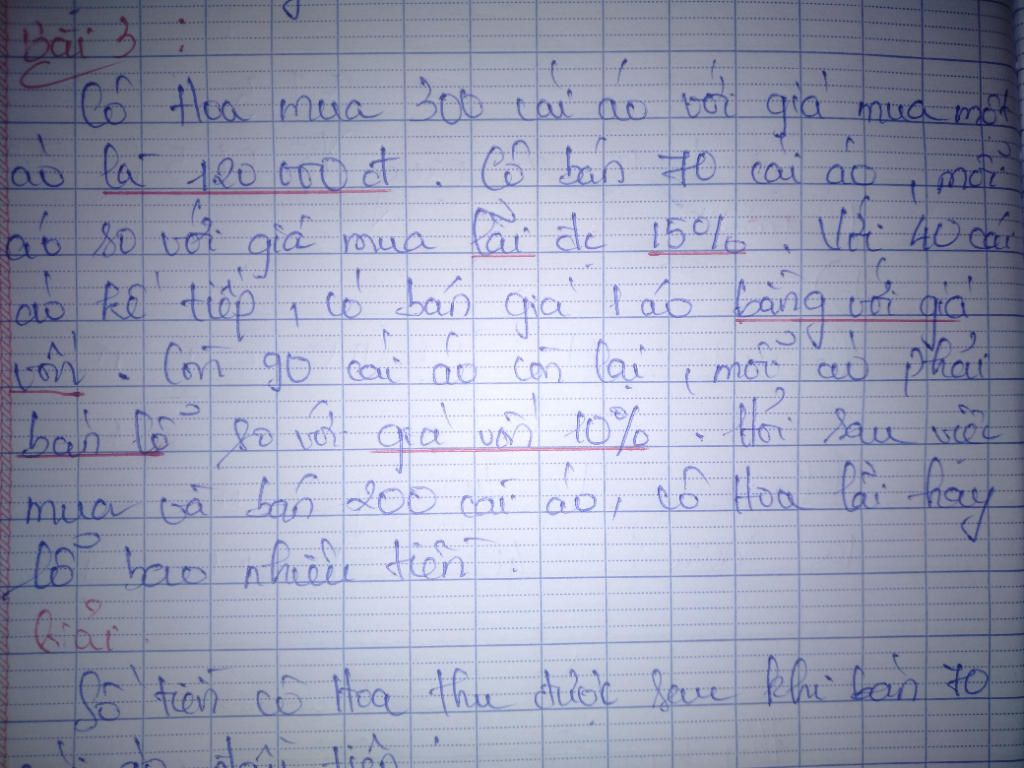 Bài 3 :
Cô Hoa mua 300 cái áo với giá mua một
áo là 120 000 đ . Cô bán 70 cái áo , mỗi
áo so với giá mua lãi đc 15% . Với 40 cái
áo kế tiếp , cô bán giá 1 áo bằng với giá
vốn . Còn 90 cái áo còn lại , mỗi áo phải
bán lỗ so với giá vốn 10% . Hỏi sau việc
mua và bán 200 cái áo , cô Hoa lãi hay
lỗ bao nhiêu tiền .
Giải .
Số tiền cô Hoa thu được sau khi bán 70
đầu tiên